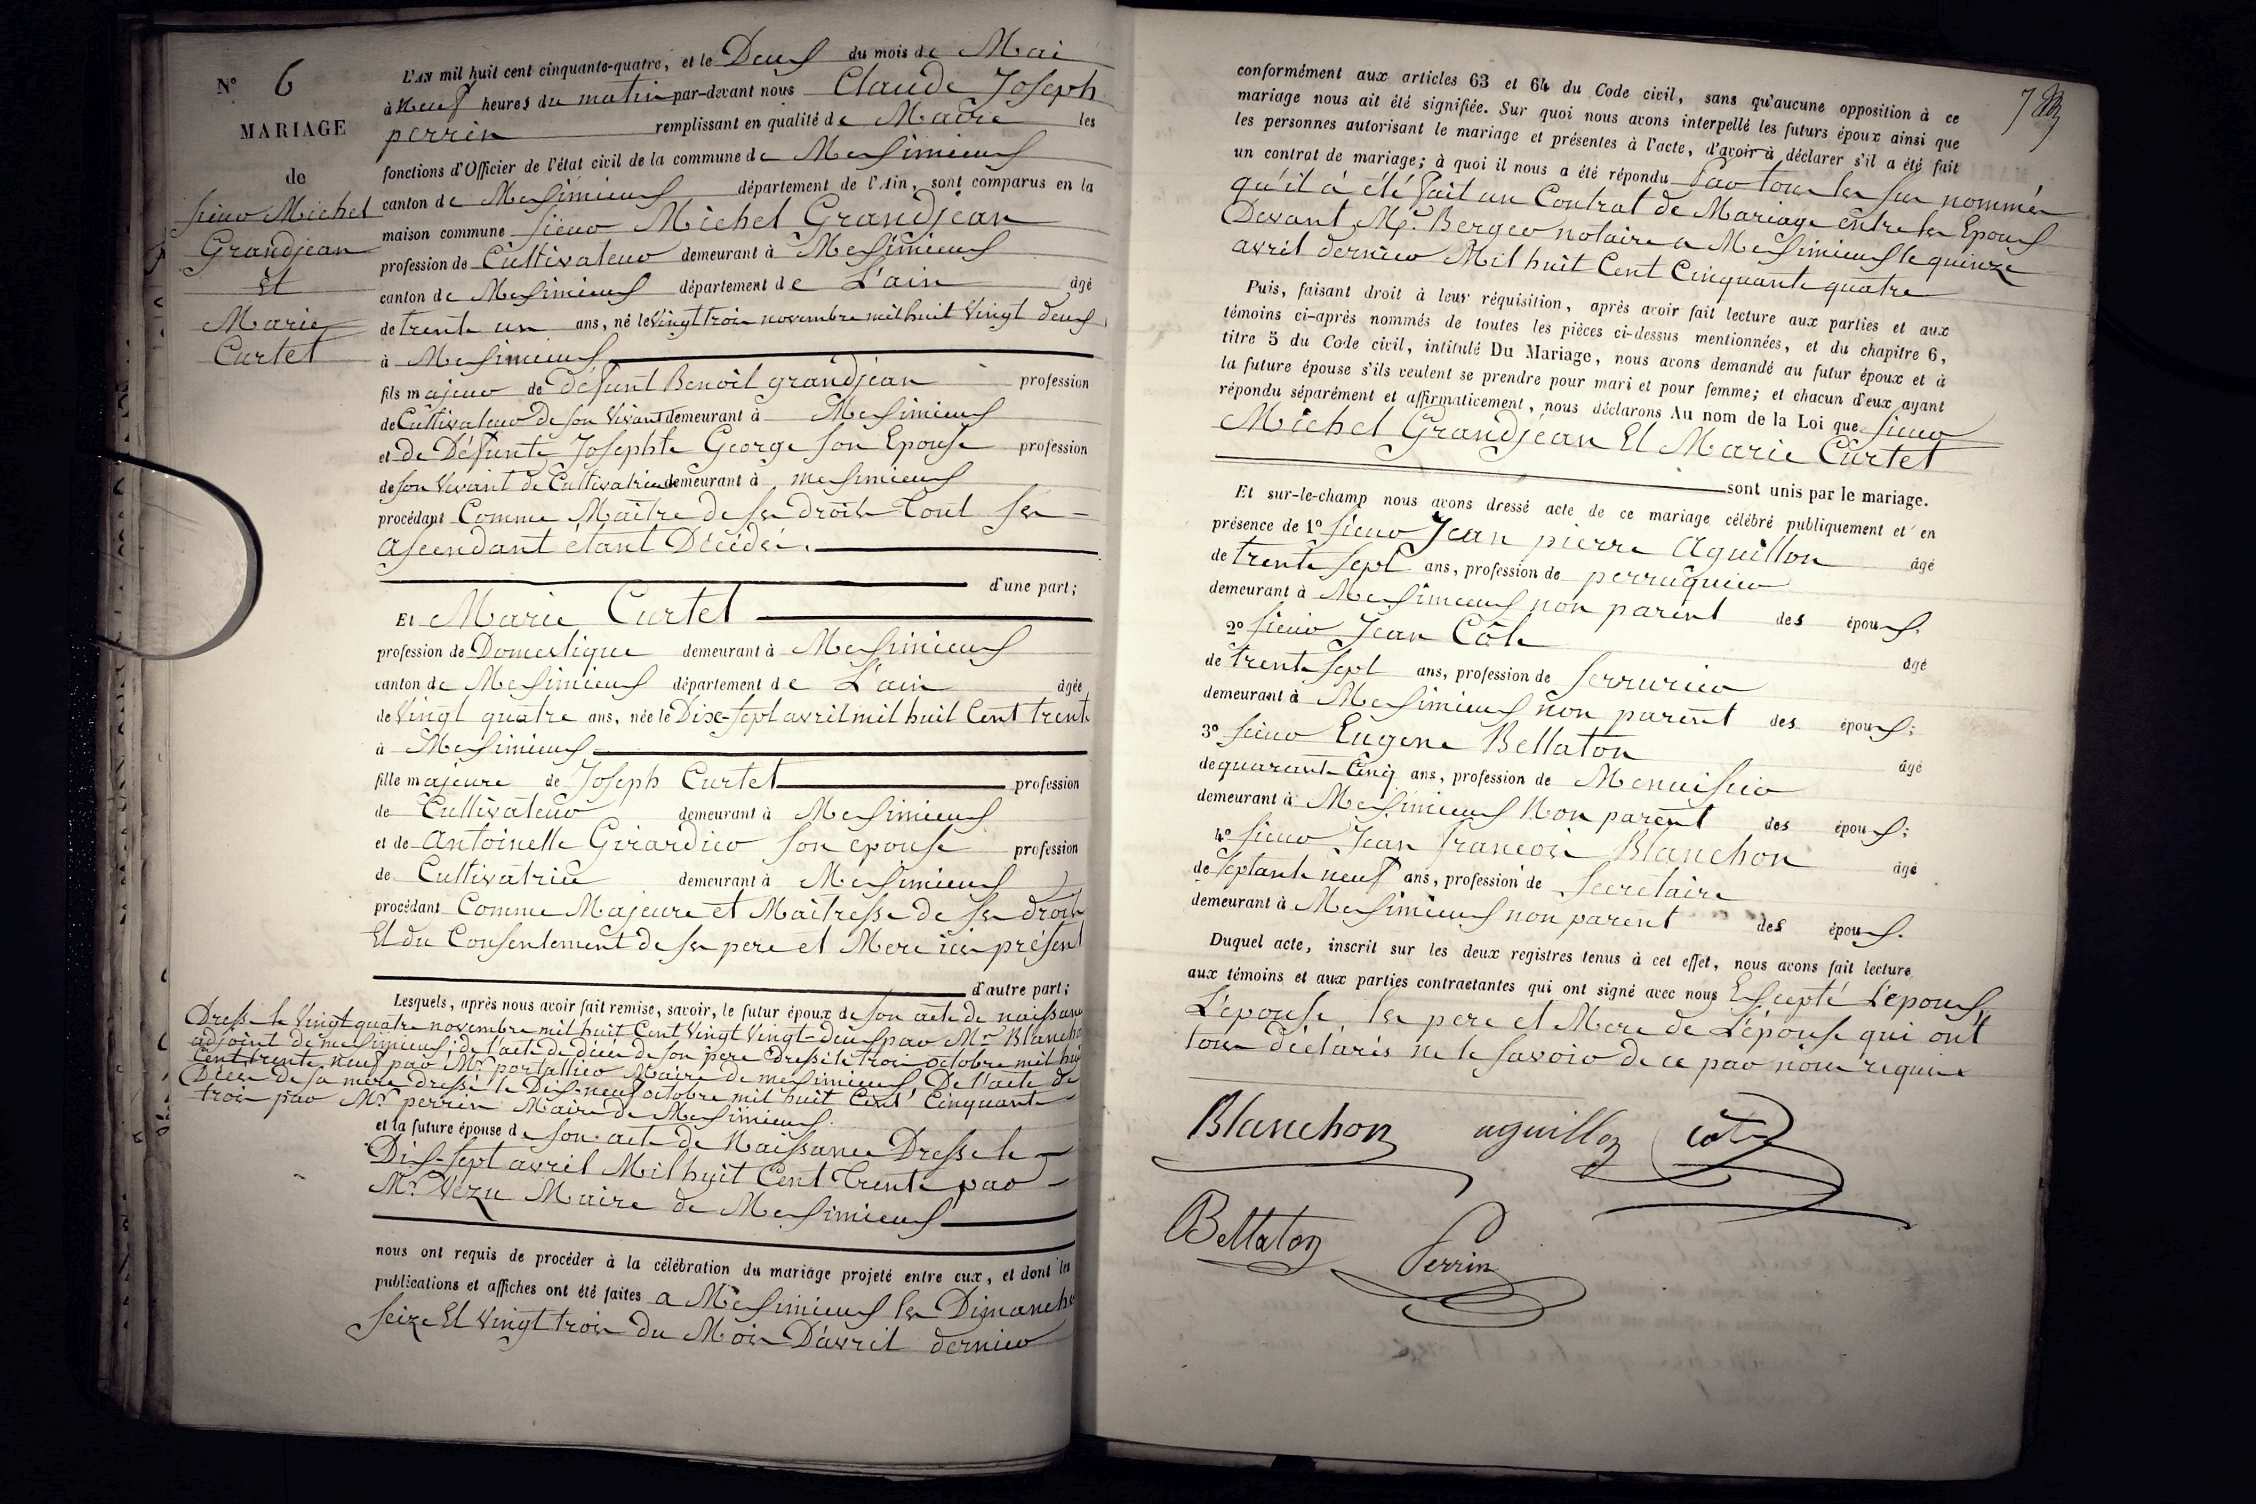 N° 6
MARIAGE
de
sieur Michel
Grandjean
et
Marie
Curtet
L'AN mil huit cent cinquante-quatre, et le Deux du mois de Mai
à neuf heures du matin par-devant nous Claude Joseph
perrin remplissant en qualité de Maire les
fonctions d'Officier de l'état civil de la commune de Meximieux
canton de Meximieux département de l'Ain, sont comparus en la
maison commune sieur Michel Grandjean
profession de Cultivateur demeurant à Meximieux
canton de Meximieux département de L'ain âgé
de trente un ans, né le vingt trois novembre mil huit vingt deux
à Meximieux
fils majeur de défunt Benoit grandjean profession
de Cultivateur de son vivant demeurant à Meximieux
et de Défunte Josephte George son Epouse profession
de son vivant de Cultivatrice demeurant à meximieux
procédant Comme Maître de ses droits tout ses
ascendant étant Décédés.
d'une part;
Et Marie Curtet
profession de Domestique demeurant à Meximieux
canton de Meximieux département de L'ain âgée
de vingt quatre ans, née le Dix-sept avril mil huit Cent trente
à Meximieux
fille majeure de Joseph Curtet profession
de Cultivateur demeurant à Meximieux
et de antoinette Girardier son epouse profession
de Cultivatrice demeurant à Meximieux
procédant Comme Majeure et Maitresse de ses droits
Et du Consentement de ses pere et Mere ici présent
d'autre part;
Lesquels, après nous avoir fait remise, savoir, le futur époux de son acte de naissance
Dressé le vingt quatre novembre mil huit Cent vingt vingt-deux par Mr Blanchon
adjoint de meximieux, de l'acte de décès de son père dressé le trois octobre mil huit
Cent trente neuf par Mr portallier Maire de meximieux, De l'acte de
Décès de sa mère dressé le Dix-neuf octobre mil huit Cent Cinquante
trois par Mr perrin Maire de Meximieux.
et la future épouse de son acte de Naissance Dressé le
Dix-sept avril Mil huit Cent Trente par
Mr Vezu Maire de Meximieux
nous ont requis de procéder à la célébration du mariage projeté entre eux, et dont les
publications et affiches ont été faites a Meximieux les Dimanche
seize Et vingt trois du Mois D'avril dernier
7
conformément aux articles 63 et 64 du Code civil, sans qu'aucune opposition à ce
mariage nous ait été signifiée. Sur quoi nous avons interpellé les futurs époux ainsi que
les personnes autorisant le mariage et présentes à l'acte, d'avoir à déclarer s'il a été fait
un contrat de mariage; à quoi il nous a été répondu par tous les sus nommés
qu'il à été fait un Contrat de Mariage entre les Epoux
Devant Me. Berger notaire a Meximieux le quinze
avril dernier Mil huit Cent Cinquante quatre
Puis, faisant droit à leur réquisition, après avoir fait lecture aux parties et aux
témoins ci-après nommés de toutes les pièces ci-dessus mentionnées, et du chapitre 6,
titre 5 du Code civil, intitulé Du Mariage, nous avons demandé au futur époux et à
la future épouse s'ils veulent se prendre pour mari et pour femme; et chacun d'eux ayant
répondu séparément et affirmativement, nous déclarons Au nom de la Loi que sieur
Michel Grandjean Et Marie Curtet
sont unis par le mariage.
Et sur-le-champ nous avons dressé acte de ce mariage célébré publiquement et en
présence de 1° sieur Jean pierre aguillon âgé
de trente sept ans, profession de perruquier
demeurant à Meximieux non parent des époux.
2° sieur Jean Côte âgé
de trente sept ans, profession de serrurier
demeurant à Meximieux non parent des époux;
3° sieur Eugene Bellaton âgé
de quarante Cinq ans, profession de Menuisier
demeurant à Meximieux Non parent des époux;
4° sieur Jean francois Blanchon âgé
de septante neuf ans, profession de Secretaire
demeurant à Meximieux non parent des époux.
Duquel acte, inscrit sur les deux registres tenus à cet effet, nous avons fait lecture
aux témoins et aux parties contractantes qui ont signé avec nous Excepté L'epoux,
L'épouse les pere et Mere de L'épouse qui ont
tous déclarés ne le savoir de ce par nous requis
Blanchon aguillon Cote
Bellaton Perrin